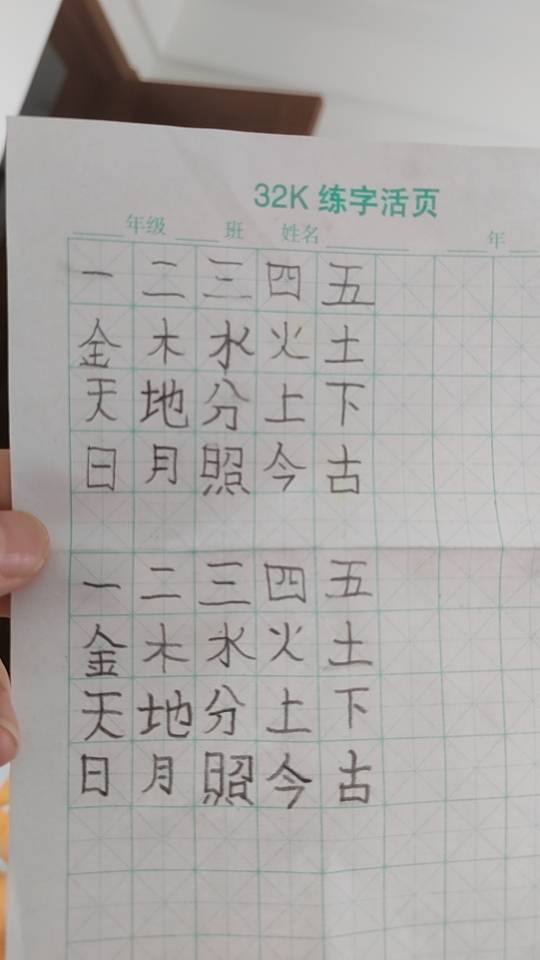 32K 练字活页
年级 班 姓名 年
一二三四五
金木水火土
天地分上下
日月照今古
一二三四五
金木水火土
天地分上下
日月照今古